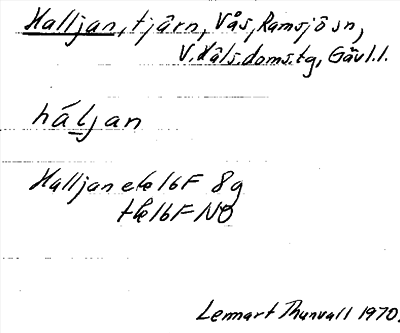 Halljan, tjärn, Vås, Ramsjö sn,
V. Häls. doms. tg, Gävl. l.
háljan
Halljan ek 16F 8g
tk 16F NO
Lennart Thunvall 1970.